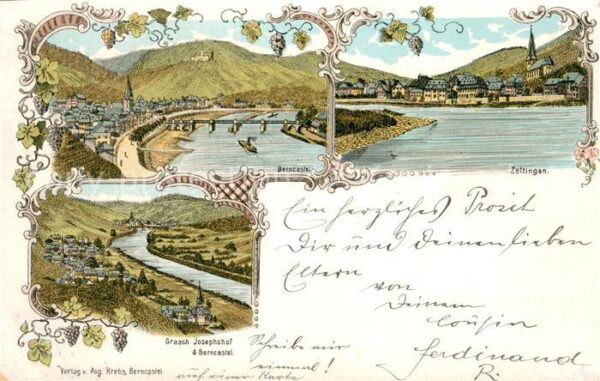 Berncastel.
Zeltingen.
Ein herzliches Prosit
Dir und Deinen lieben
Eltern von
Deinem
Cousin
Ferdinand
R.
Graach Josephshof
& Berncastel.
Schreibe mir
einmal!
auf einer Karte
Verlag v. Aug. Krebs, Berncastel.